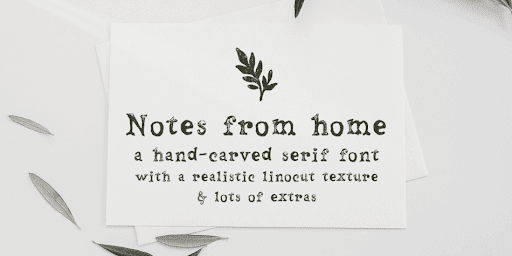 Notes from home
a hand-carved serif font
with a realistic linocut texture
& lots of extras